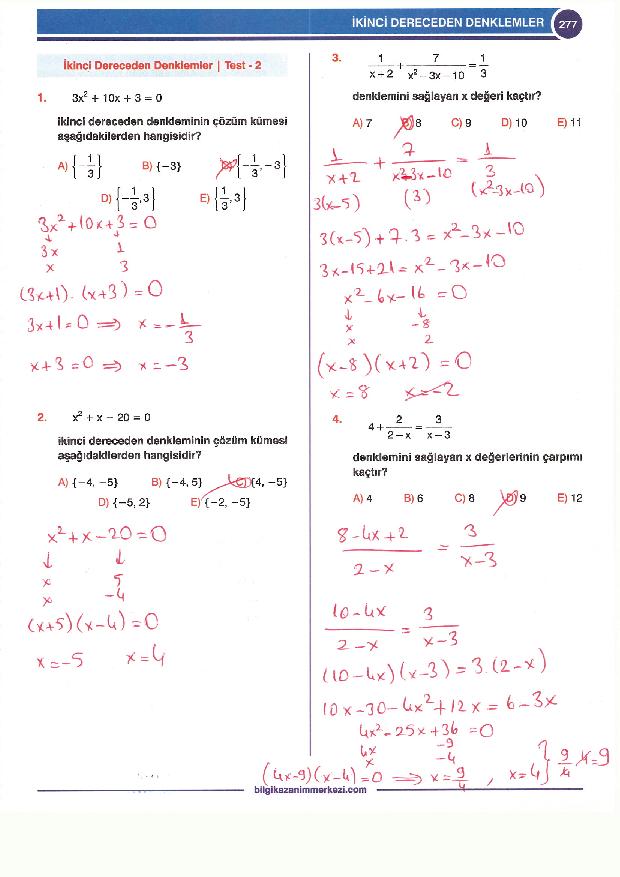 İKİNCİ DERECEDEN DENKLEMLER 277
İkinci Dereceden Denklemler | Test - 2
1. 3x² + 10x + 3 = 0
ikinci dereceden denkleminin çözüm kümesi
aşağıdakilerden hangisidir?
A) {-1/3} B) {-3} C) {-1/3, -3}
D) {-1/3, 3} E) {1/3, 3}
3x² + 10x + 3 = 0
↓ ↓
3x 1
x 3
(3x+1) . (x+3) = 0
3x+1 = 0 ⟹ x = -1/3
x + 3 = 0 ⟹ x = -3
2. x² + x - 20 = 0
ikinci dereceden denkleminin çözüm kümesi
aşağıdakilerden hangisidir?
A) {-4, -5} B) {-4, 5} C) {4, -5}
D) {-5, 2} E) {-2, -5}
x² + x - 20 = 0
↓ ↓
x 5
x -4
(x+5) (x-4) = 0
x = -5 x = 4
3. 1/(x-2) + 7/(x² - 3x - 10) = 1/3
denklemini sağlayan x değeri kaçtır?
A) 7 B) 8 C) 9 D) 10 E) 11
1/(x+2) + 7/(x²-3x-10) = 1/3
3(x-5) (3) (x²-3x-10)
3(x-5) + 7.3 = x² - 3x - 10
3x-15+21 = x² - 3x - 10
x² - 6x - 16 = 0
↓ ↓
x -8
x 2
(x-8) (x+2) = 0
x = 8 x = -2
4. 4 + 2/(2-x) = 3/(x-3)
denklemini sağlayan x değerlerinin çarpımı
kaçtır?
A) 4 B) 6 C) 8 D) 9 E) 12
(8-4x+2)/(2-x) = 3/(x-3)
(10-4x)/(2-x) = 3/(x-3)
(10-4x) (x-3) = 3.(2-x)
10x-30-4x²+12x = 6-3x
4x² - 25x + 36 = 0
4x -9
x -4
(4x-9) (x-4) = 0 ⟹ x = 9/4 , x = 4 } 9/4 . 4 = 9
bilgikazanimmerkezi.com